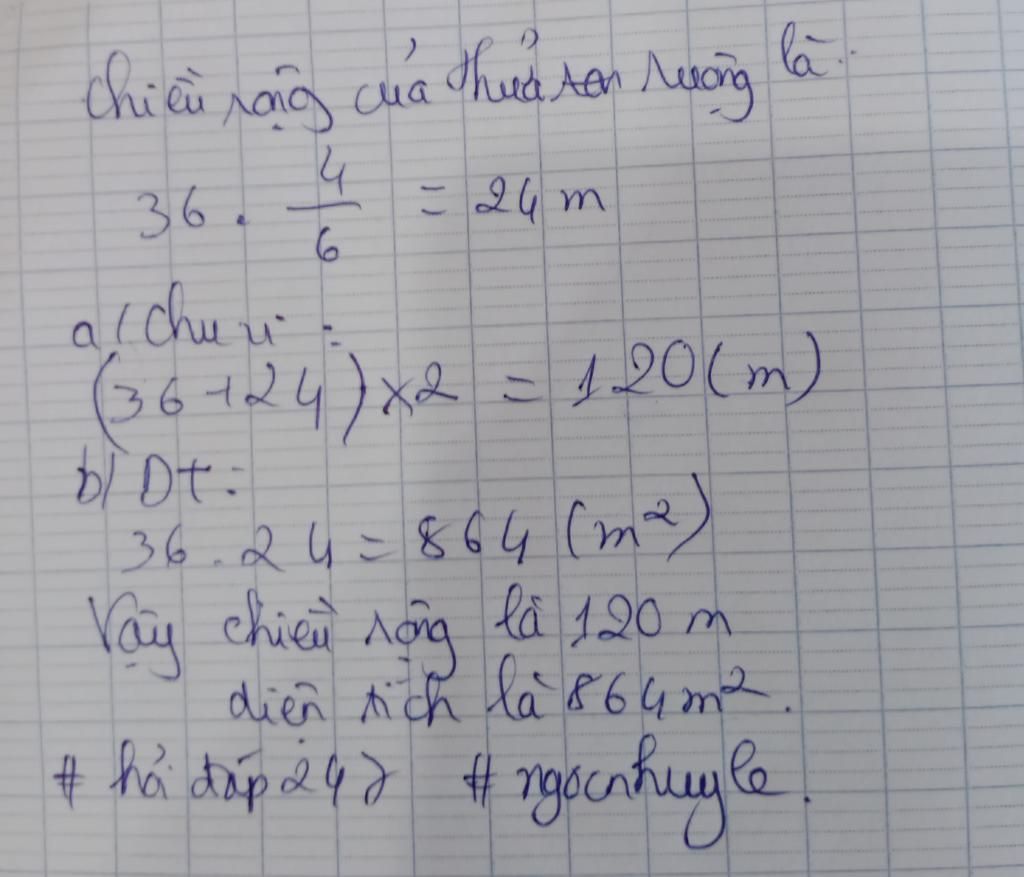 Chiều rộng của thửa ruộng là:
36 . 4/6 = 24 m
a/ Chu vi :
(36+24)×2 = 120 (m)
b/ Dt :
36 . 24 = 864 (m²)
Vậy chiều rộng là 120 m
diện tích là 864 m².
# hỏi đáp 247 # ngocnhuyle.